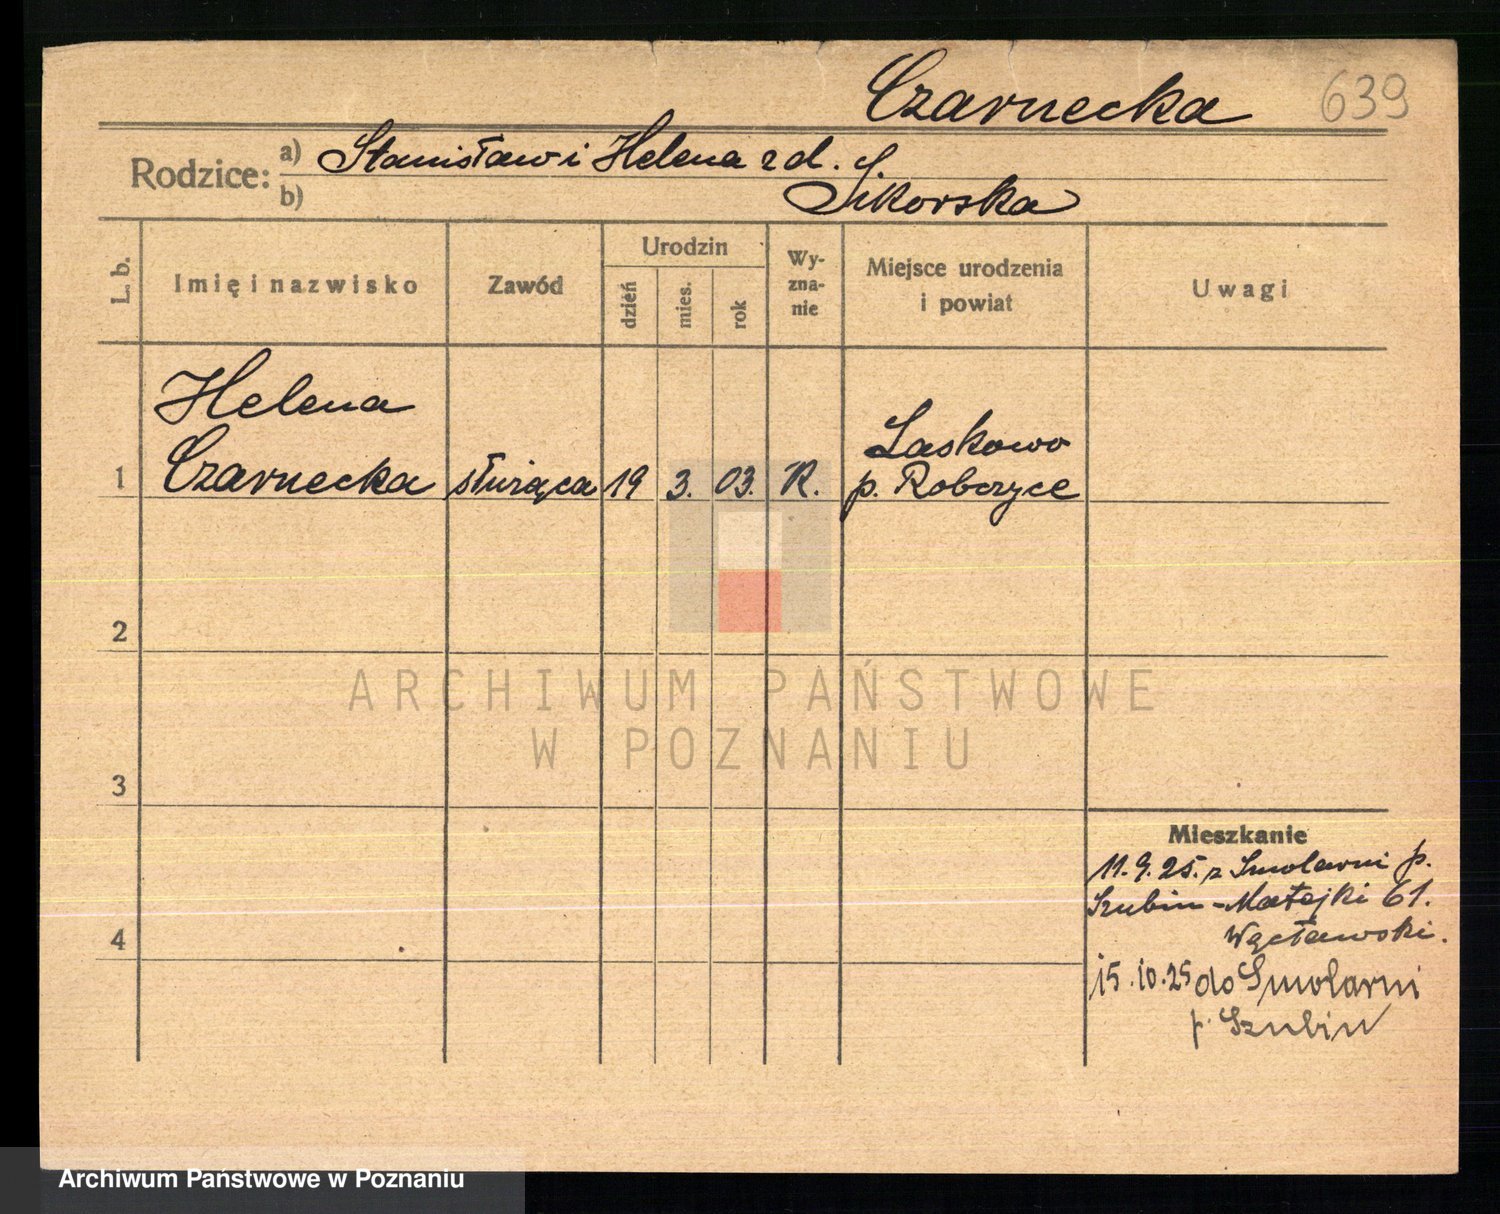 Czarnecka 639
Rodzice: a) Stanisław i Helena zd.
b) Sikorska
L. b. Imię i nazwisko Zawód Urodzin dzień mies. rok Wyznanie Miejsce urodzenia i powiat Uwagi
Helena Laskowo
1 Czarnecka służąca 19 3. 03. R. p. Robczyce
2
ARCHIWUM PAŃSTWOWE
W POZNANIU
3
Mieszkanie
11.9.25. z Smolarni p.
Szubin - Matejki 61.
Wącławski.
4
15.10.25 do Smolarni
p. Szubin
Archiwum Państwowe w Poznaniu